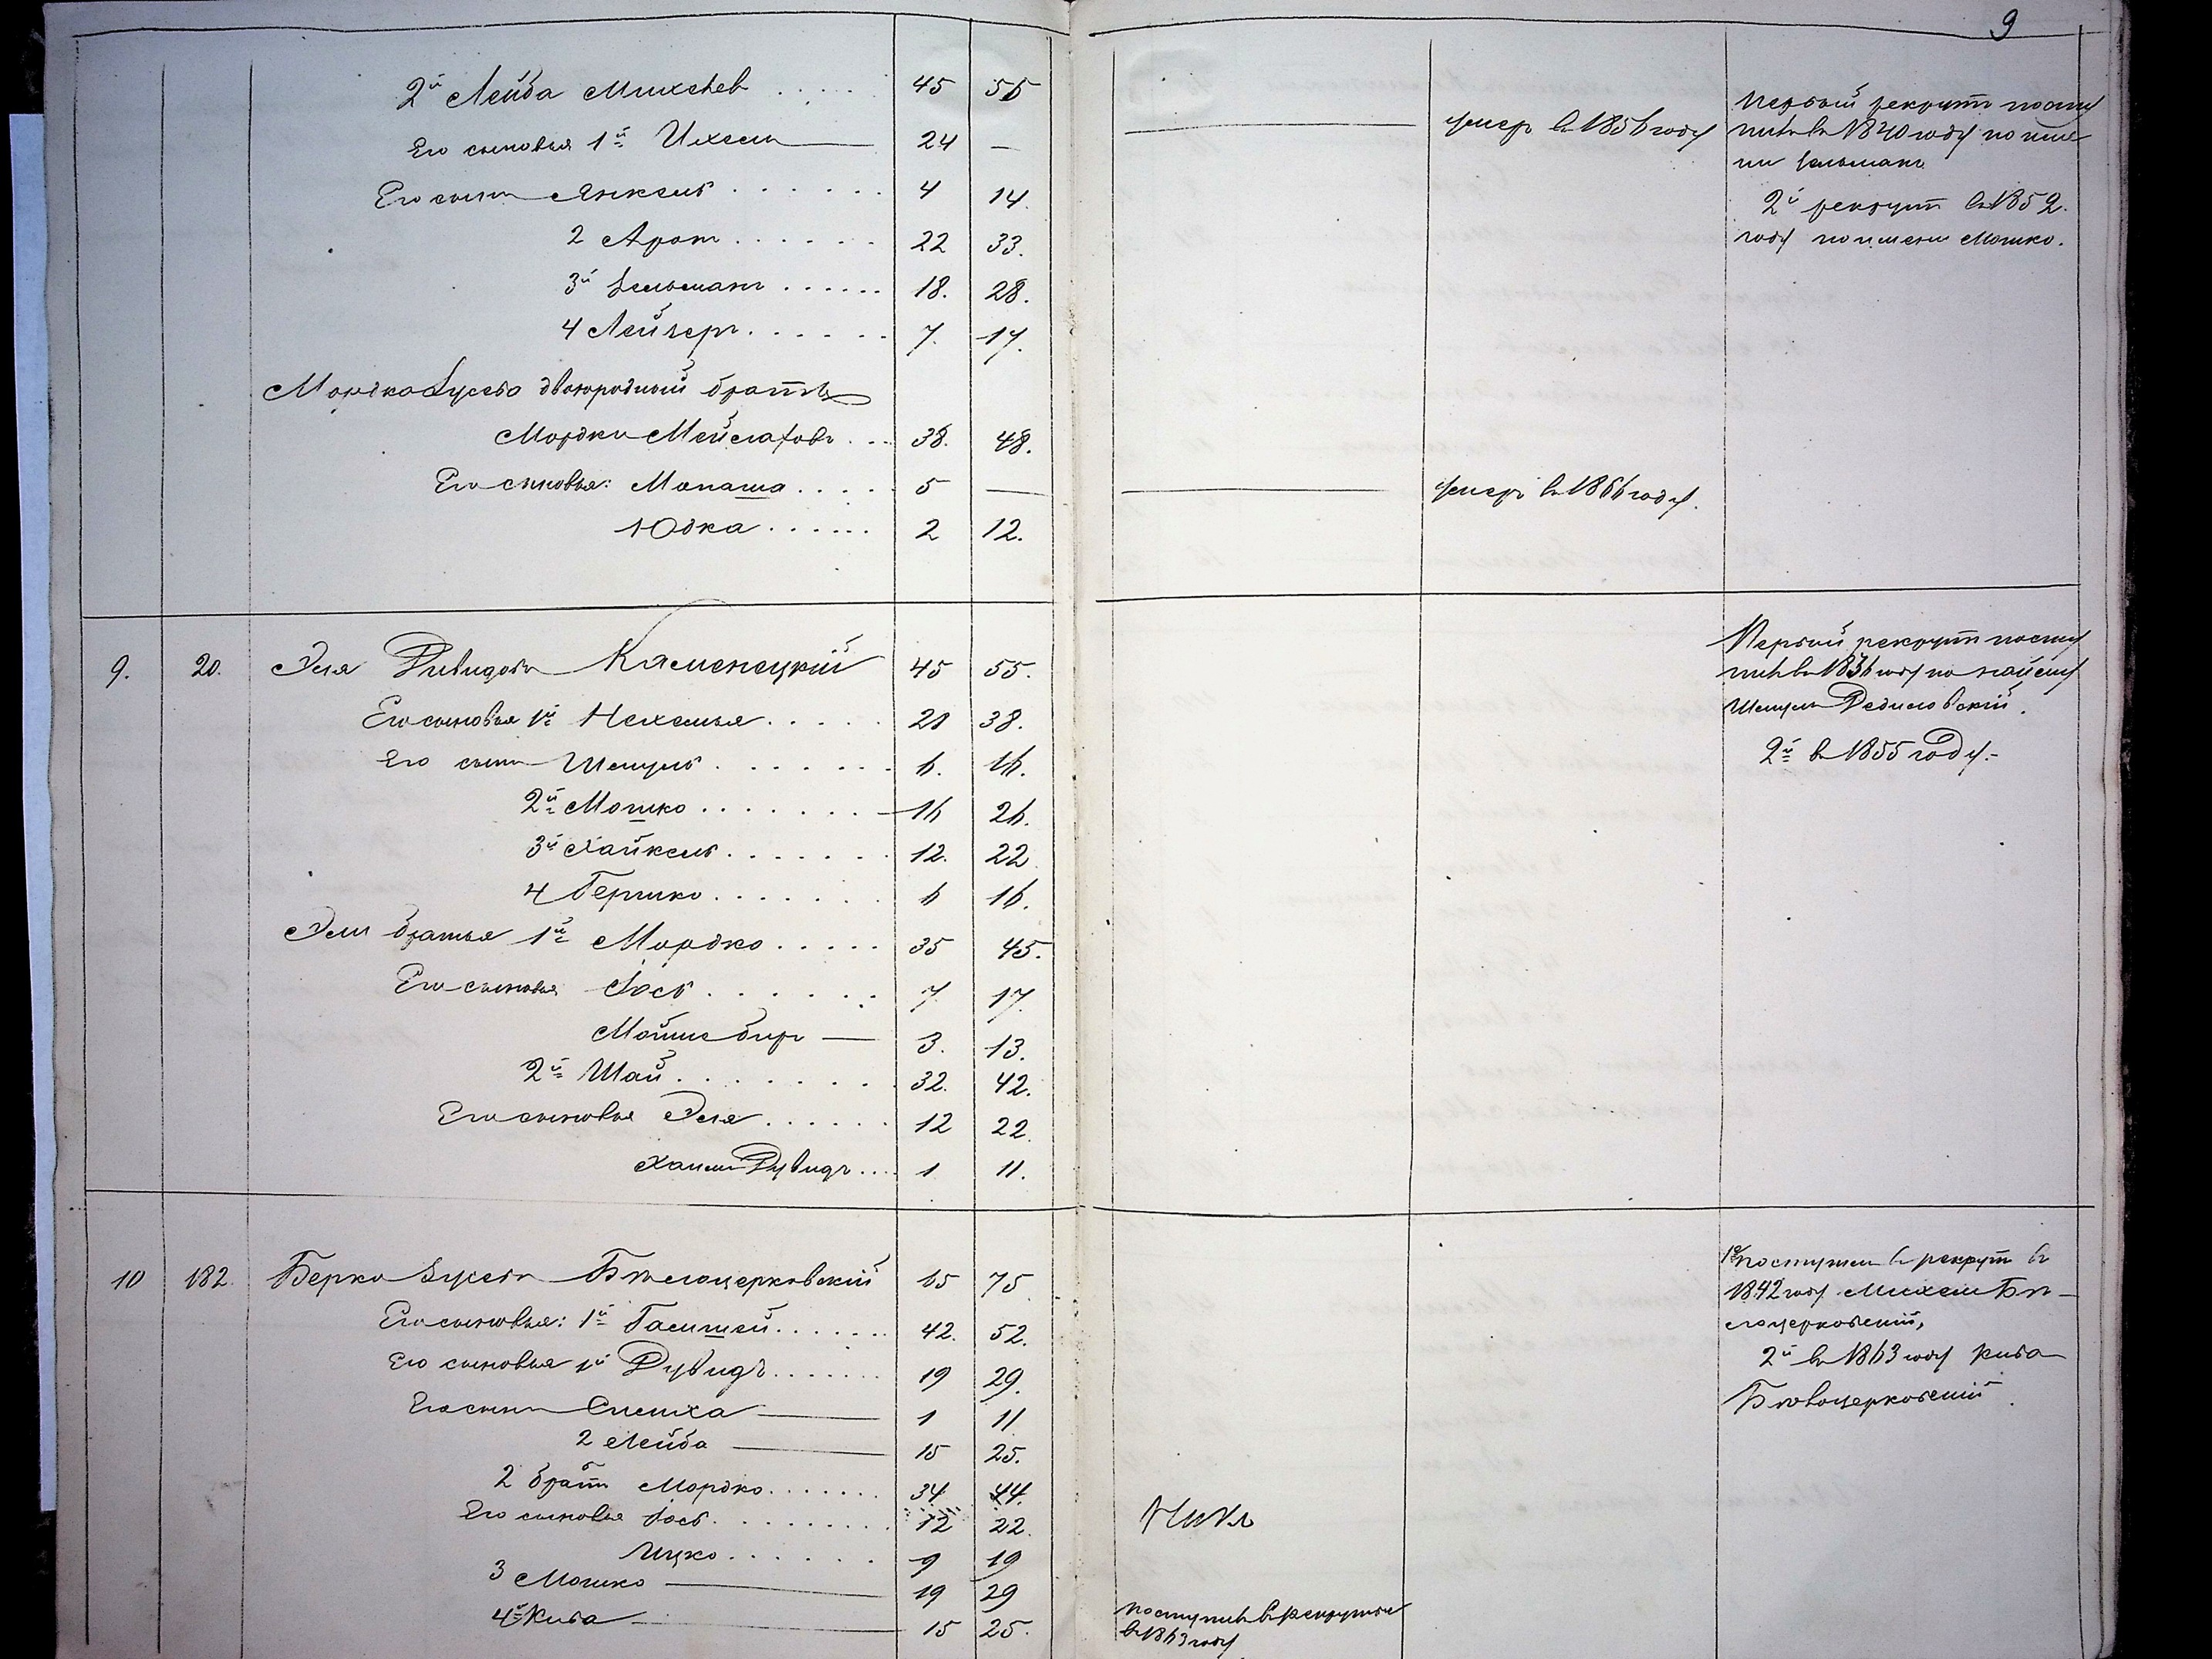 9
2й Лейба Михелев 45 55
умер в 1856 году
Первый рекрут посту
пил в 1840 году по име
ни Зельман
2й рекрут в 1852
году по имени Мошко.
Его сыновья 1й Ихель 24 —
Его сын Янкель 4 14.
2 Арон 22 33.
3й Зельман 18. 28.
4 Лейзер 7. 17.
двоюродный братъ
Мордко 38. 48.
Его сыновья: Монаша 5 —
умер в 1866 году.
Юдка 2 12.
9. 20. Эля Каменецкій 45 55.
Первый рекрут посту
пил в 1836 году по найму
2й в 1855 году.-
Его сыновья 1й Нехемья 28 38.
Его сын Шмуль 6. 16.
2й Мошко 16 26.
3й Хайкель 12. 22
4 Гершко 6 16.
Эли братья 1й Мордко 35 45.
Его сыновья Іось 7 17.
3. 13.
2й Шай 32. 42.
Его сыновья Эля 12 22.
Хаим Рувидъ 1 11.
10 182. Берко Бѣлоцерковскій 65 75
1й поступил в рекрут в
1842 году Михель Бѣ-
лоцерковский,
2й в 1863 году Кива
Бѣлоцерковский.
Его сыновья: 1й 42. 52.
Его сыновья 1й Рувидъ 19 29.
Его сын Симха 1 11
2 Лейба 15 25.
2 братъ Мордко 34 44.
Его сыновья Іось 12 22.
Ицко 9 19
3 Мошко 19 29
4й Кива 15 25.
поступил в рекруты
в 1863 году